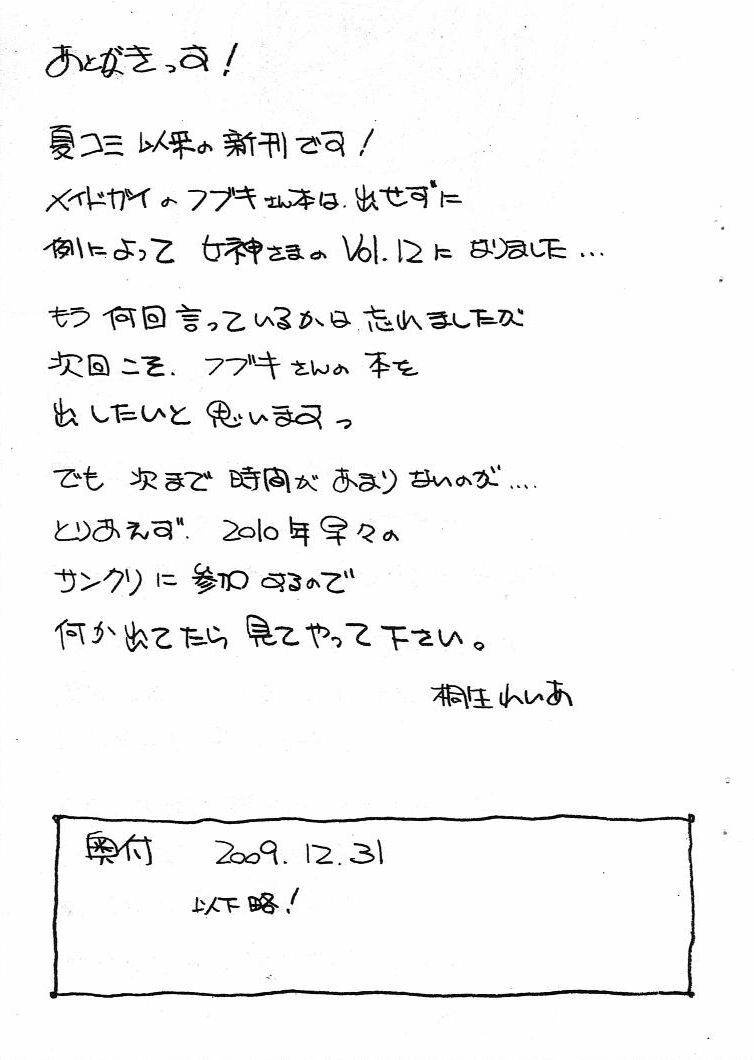 あとがきっす！
夏コミ以来の新刊です！
メイドガイのフブキさん本は、出せずに
例によって 女神さまの Vol.12に なりました…
もう 何回言っているかは 忘れましたが
次回こそ、フブキさんの 本を
出したいと 思いますっ
でも 次まで 時間が あまりないのが‥‥
とりあえず、2010年早々の
サンクリに 参加するので
何か出てたら 見てやって下さい。
桐生れいあ
奥付 2009.12.31
以下略！